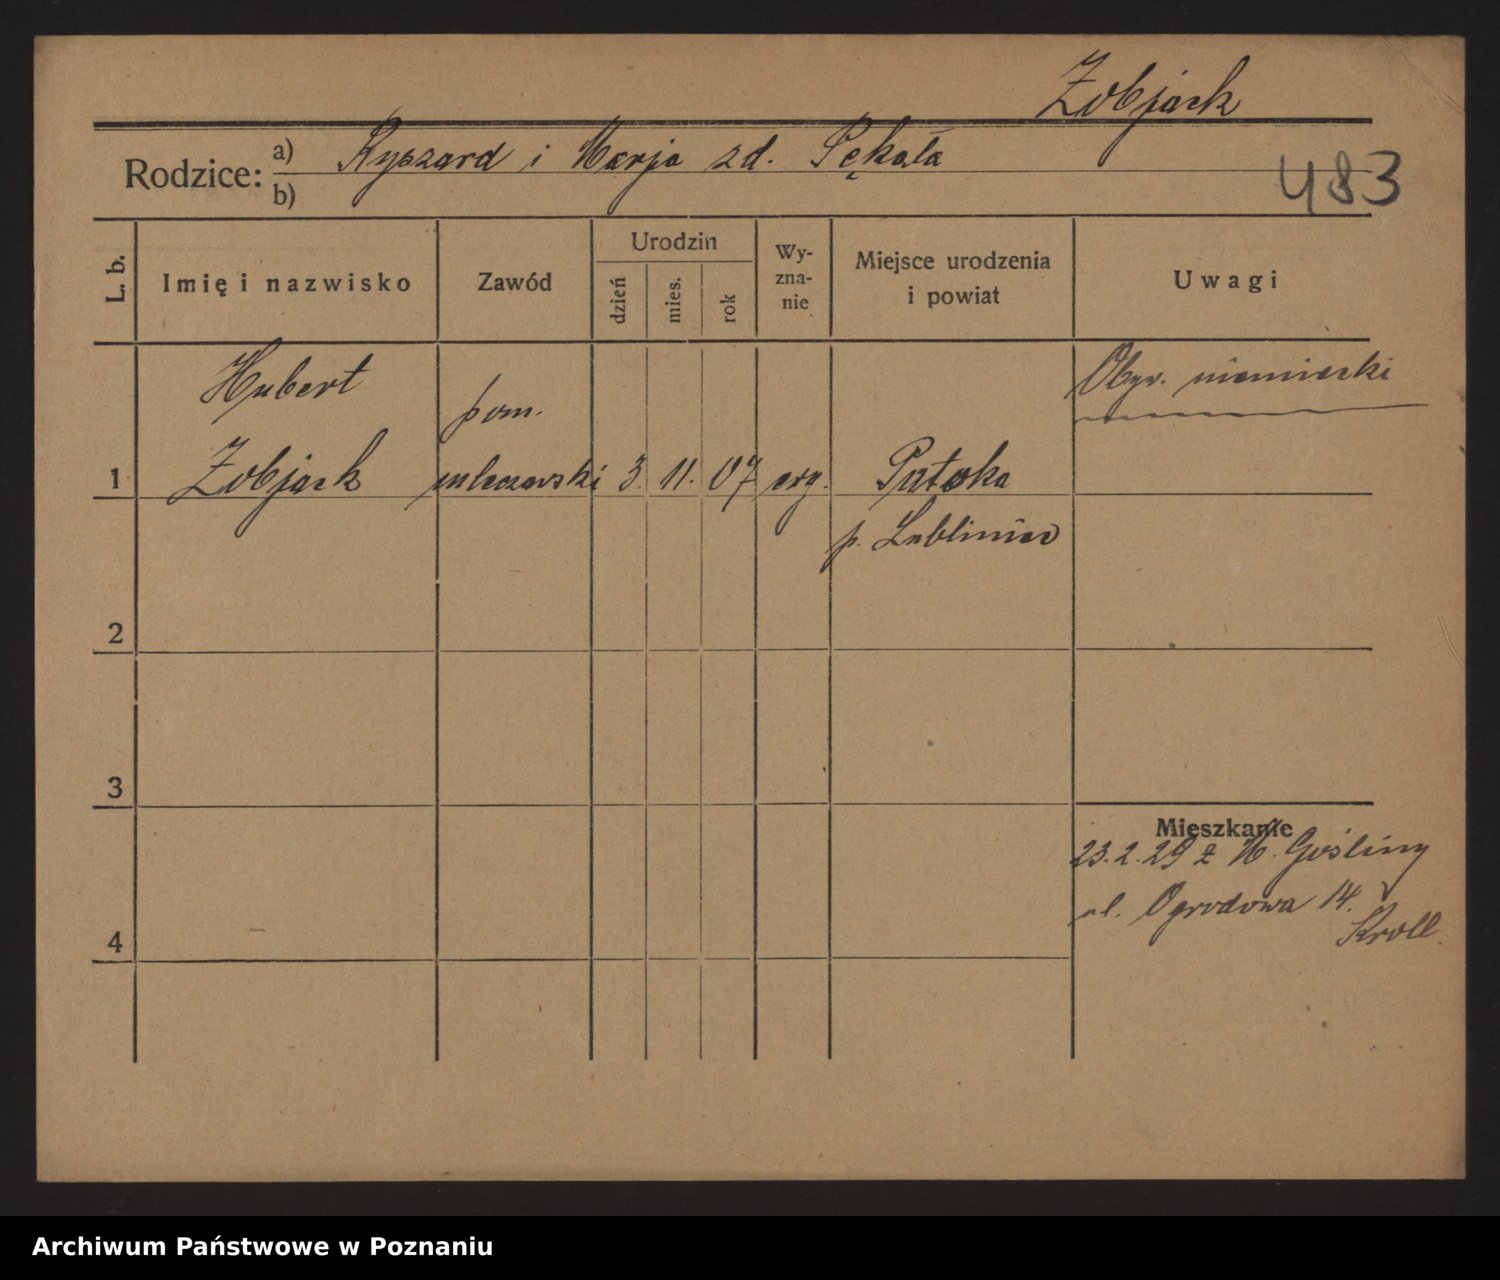 Zobjack
Rodzice: a) Ryszard i Marja zd. Pękała
b)
483
L. b.
Imię i nazwisko
Zawód
Urodzin
dzień
mies.
rok
Wy-
zna-
nie
Miejsce urodzenia
i powiat
Uwagi
Hubert
pom.
Obyw. niemiecki
1 Zobjack mleczarski 3. 11. 07 erg. Patoka
p. Lubliniec
2
3
Mieszkanie
23.2.29 z M. Gośliny
ul. Ogrodowa 14.
Kroll
4
Archiwum Państwowe w Poznaniu